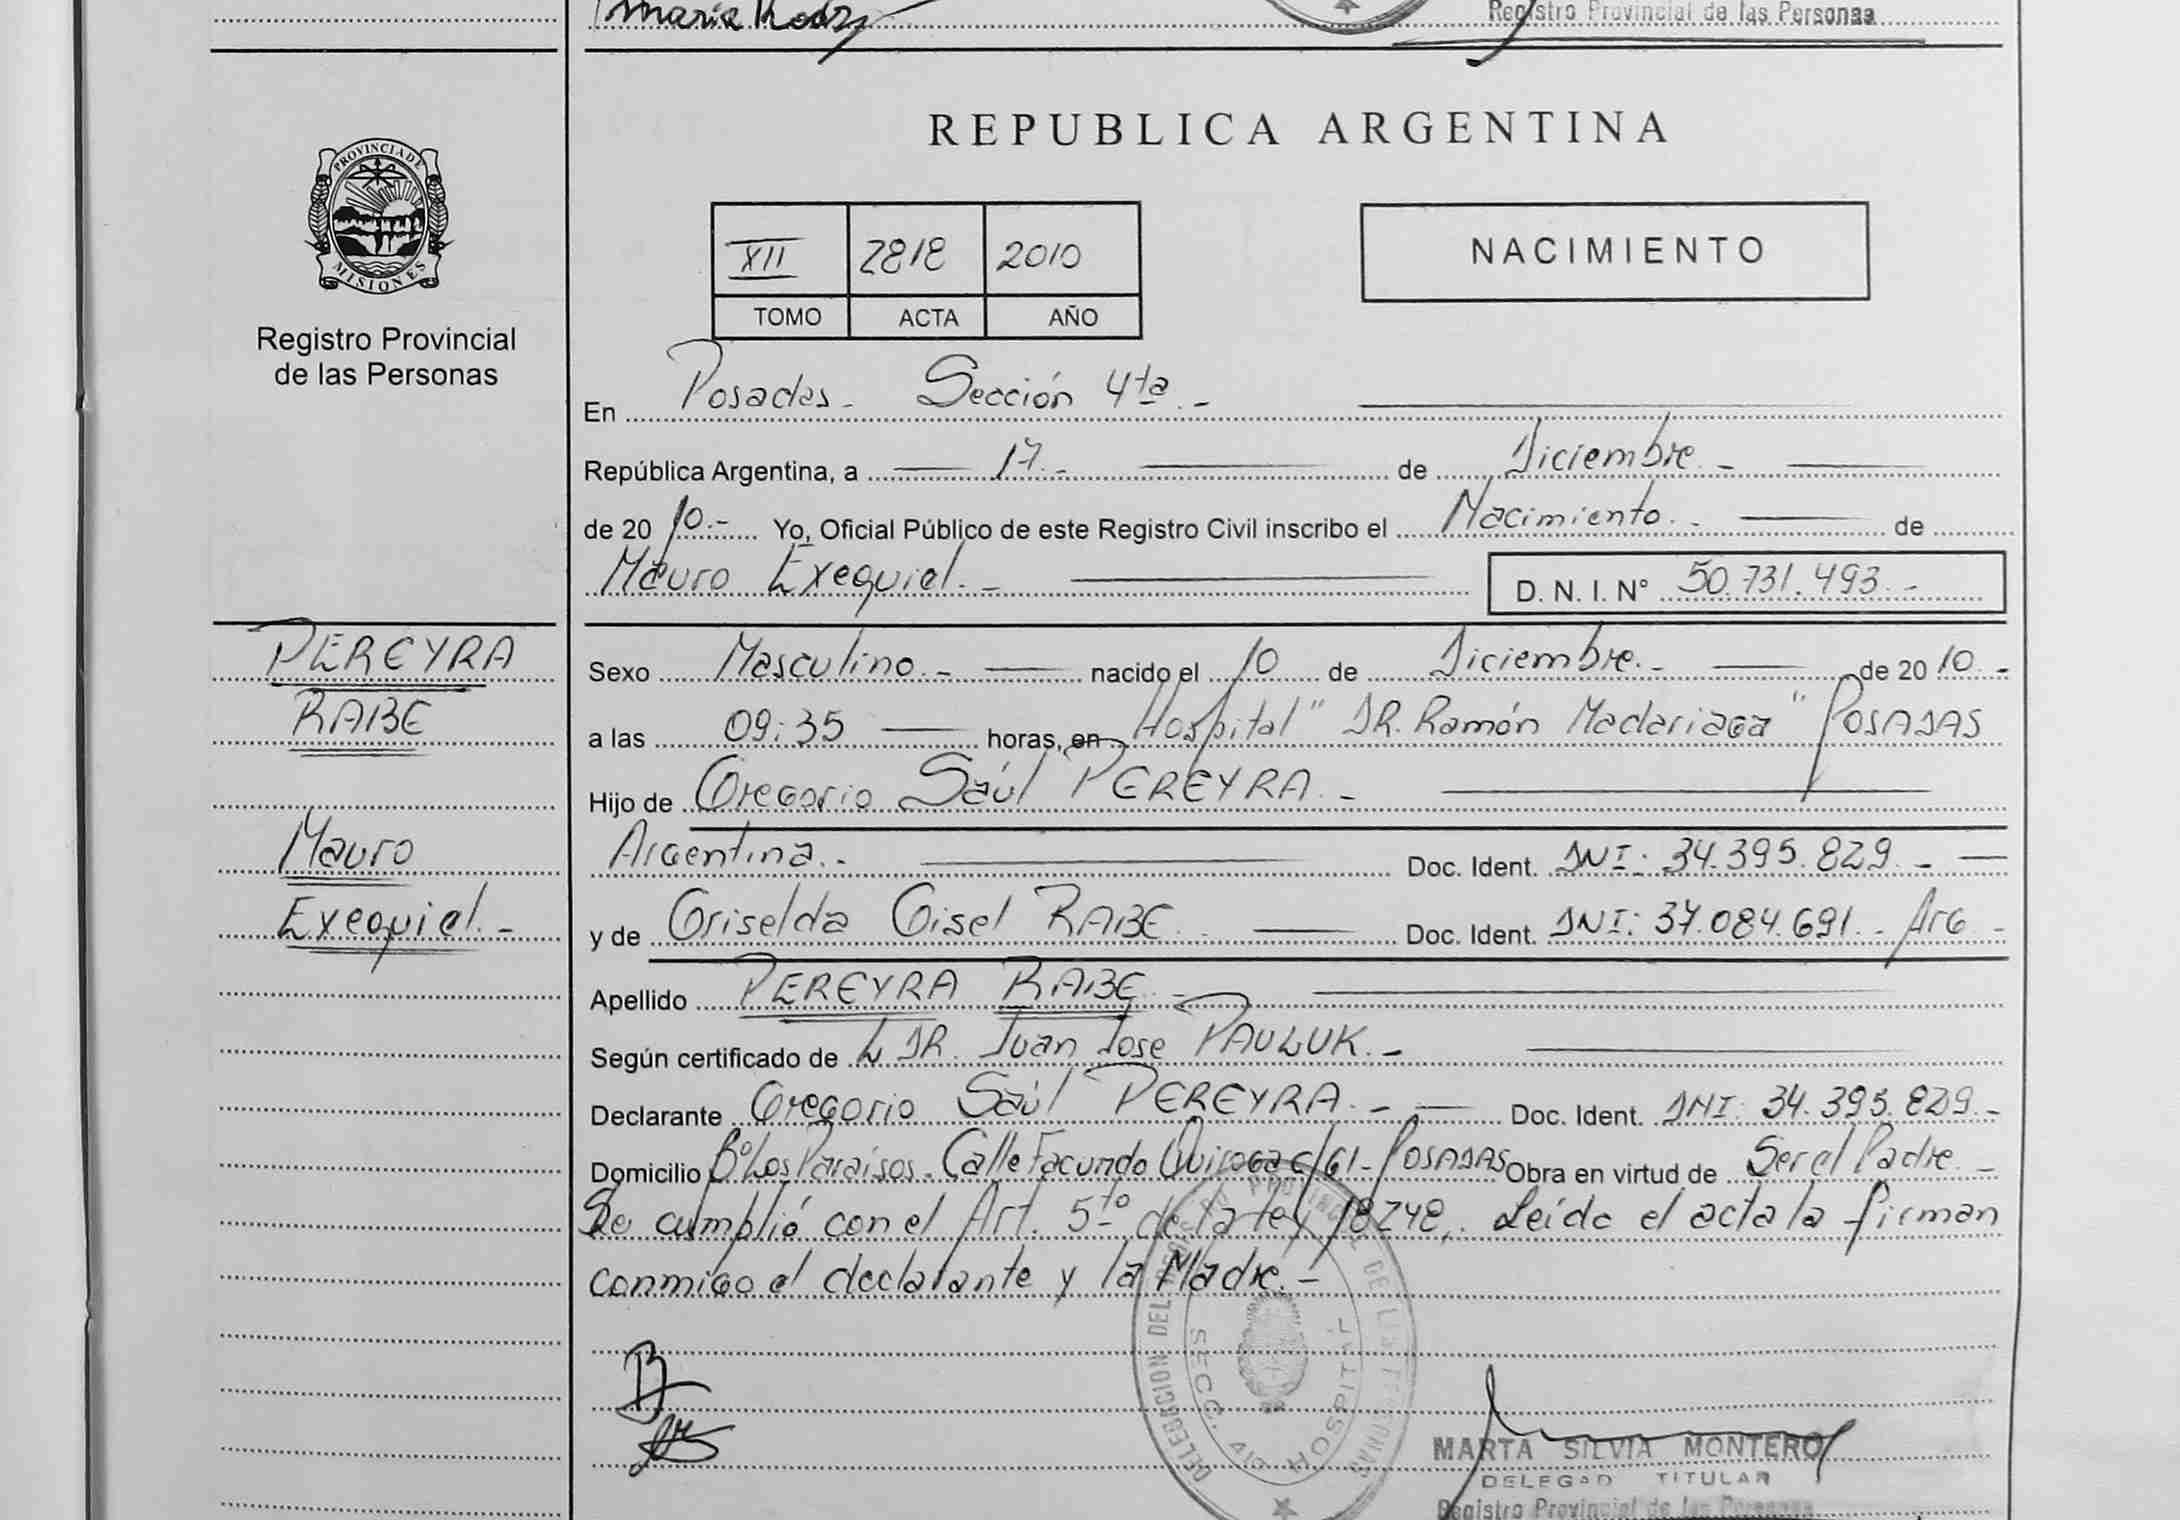 María Rodz
Registro Provincial de las Personas
REPUBLICA ARGENTINA
PROVINCIA DE
MISIONES
Registro Provincial
de las Personas
XII 2818 2010
TOMO ACTA AÑO
NACIMIENTO
En Posadas - Sección 4ta. -
República Argentina, a 17. - de Diciembre. -
de 20 10. - Yo, Oficial Público de este Registro Civil inscribo el Nacimiento. - de
Mauro Exequiel. -
D. N. I. Nº 50.731.493. -
PEREYRA
RABE
Mauro
Exequiel. -
Sexo Masculino. - nacido el 10 de Diciembre. - de 20 10. -
a las 09:35 horas, en Hospital "DR. Ramón Madariaga" POSADAS
Hijo de Gregorio Saúl PEREYRA. -
Argentina. - Doc. Ident. DNI: 34.395.829. -
y de Griselda Gisel RABE. Doc. Ident. DNI: 37.084.691. - Arg -
Apellido PEREYRA RABE. -
Según certificado de L DR. Juan Jose PAULUK. -
Declarante Gregorio Saúl PEREYRA. - Doc. Ident. DNI: 34.395.829. -
Domicilio Bº Los Paraísos. Calle Facundo Quiroga c/61 - POSADAS Obra en virtud de Ser el Padre. -
Se cumplió con el Art. 5to de la ley 18248. Leída el acta la firman
conmigo el declarante y la Madre. -
DELEGACION DEL REGISTRO PROVINCIAL DE LAS PERSONAS
SECC. 4ta HOSPITAL
MARTA SILVIA MONTERO
DELEGAD TITULAR
Registro Provincial de las Personas